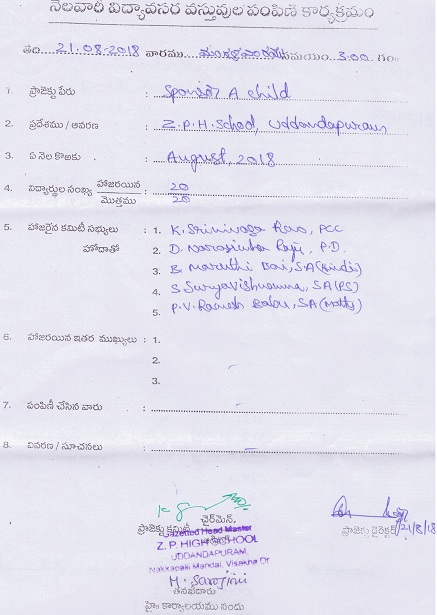 నెలవారీ విద్యావసర వస్తువుల పంపిణీ కార్యక్రమం
తేది 21.08.2018 వారము మంగళవారము సమయం 3.00 గం॥
1. ప్రాజెక్టు పేరు : Sponsor A child
2. ప్రదేశము / ఆవరణ : Z.P.H. School, Uddandapuram
3. ఏ నెల కొఱకు : August, 2018
4. విద్యార్థుల సంఖ్య హాజరయిన : 20
మొత్తము 20
5. హాజరైన కమిటీ సభ్యులు : 1. K. Srinivasa Rao, PCC
హోదాతో 2. D. Narasimha Raju, P.D.
3. B Maruthi Bai, S.A (Hindi)
4. S Surya Vishnamma, SA (PS)
5. P.V. Ramesh Babu, SA (Maths)
6. హాజరయిన ఇతర ముఖ్యులు : 1.
2.
3.
7. పంపిణీ చేసిన వారు :
8. వివరణ / సూచనలు :
ఛైర్మెన్,
ప్రాజెక్టు కమిటీ
ప్రాజెక్టు డైరెక్టర్ 21/8/18
Gazetted Head Master
Z. P. HIGH SCHOOL
UDDANDAPURAM,
Nakkapalli Mandal, Visakha Dt
H. Sarojini
తనఖీదారు
హై॥ కార్యాలయము నందు